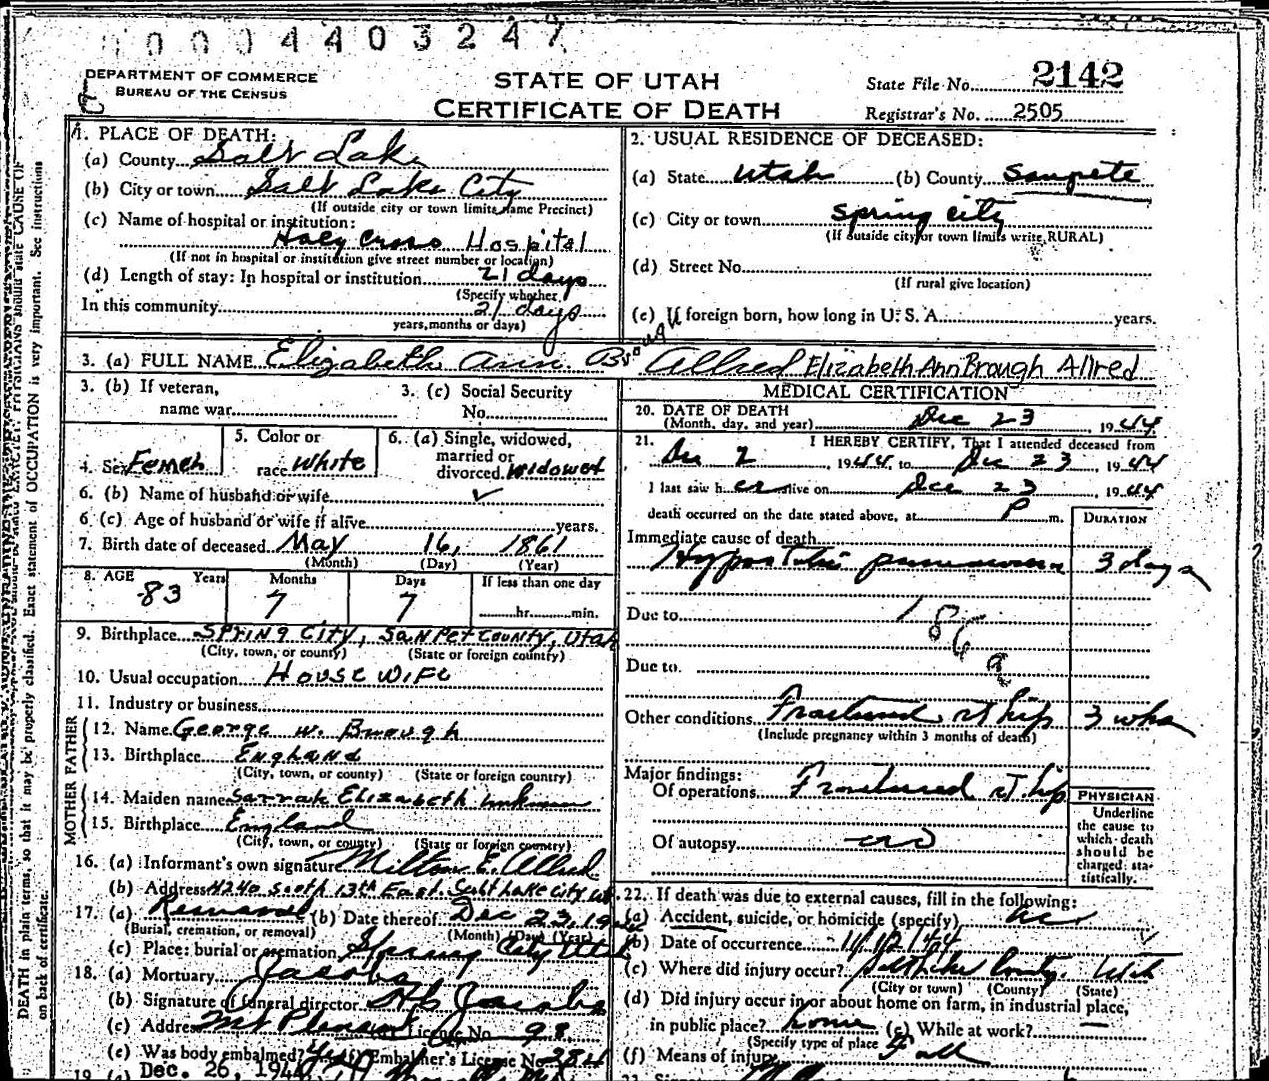 0004403247
DEPARTMENT OF COMMERCE
BUREAU OF THE CENSUS
STATE OF UTAH
CERTIFICATE OF DEATH
State File No. 2142
Registrar's No. 2505
1. PLACE OF DEATH:
(a) County Salt Lake
(b) City or town Salt Lake City
(If outside city or town limits name Precinct)
(c) Name of hospital or institution:
Holy Cross Hospital
(If not in hospital or institution give street number or location)
(d) Length of stay: In hospital or institution 21 days
(Specify whether
In this community 21 days
years, months or days)
2. USUAL RESIDENCE OF DECEASED:
(a) State Utah (b) County Sanpete
(c) City or town Spring City
(If outside city or town limits write RURAL)
(d) Street No.
(If rural give location)
(e) If foreign born, how long in U. S. A. years.
3. (a) FULL NAME Elizabeth Ann Brough Allred Elizabeth Ann Brough Allred
3. (b) If veteran,
name war
3. (c) Social Security
No.
4. Sex Femeh
5. Color or
race White
6. (a) Single, widowed,
married or
divorced. Widowed
6. (b) Name of husband or wife ✓
6 (c) Age of husband or wife if alive years.
7. Birth date of deceased May 16, 1861
(Month) (Day) (Year)
8. AGE Years Months Days If less than one day
83 7 7 hr. min.
9. Birthplace Spring City, SanPet County, Utah
(City, town, or county) (State or foreign country)
10. Usual occupation House Wife
11. Industry or business
FATHER
12. Name George W. Brough
13. Birthplace England
(City, town, or county) (State or foreign country)
MOTHER
14. Maiden name Sarrah Elizabeth unknown
15. Birthplace England
(City, town, or county) (State or foreign country)
16. (a) Informant's own signature Milton E. Allred
(b) Address 4240 South 13th East. Salt Lake City Ut
17. (a) Removal (b) Date thereof Dec 23, 19
(Burial, cremation, or removal) (Month) (Day) (Year)
(c) Place: burial or cremation Spring City Utah
18. (a) Mortuary Jacobs
(b) Signature of funeral director Jacobs
(c) Address Mt Pleasant License No. 98
(e) Was body embalmed? Yes Embalmer's License No. 284
19. Dec. 26, 1944
MEDICAL CERTIFICATION
20. DATE OF DEATH
(Month, day, and year) Dec 23 1944
21. I HEREBY CERTIFY, That I attended deceased from
Dec 2, 1944, to Dec 23, 1944
I last saw her alive on Dec 23, 1944
death occurred on the date stated above, at P m.
DURATION
Immediate cause of death
Hypostatic pneumonia 3 days
Due to 186a
Due to
Other conditions Fractured rt hip 3 wks
(Include pregnancy within 3 months of death)
Major findings:
Of operations Fractured rt hip
Of autopsy
PHYSICIAN
Underline
the cause to
which death
should be
charged sta-
tistically.
22. If death was due to external causes, fill in the following:
(a) Accident, suicide, or homicide (specify)
(b) Date of occurrence
(c) Where did injury occur? Salt Lake County Utah
(City or town) (County) (State)
(d) Did injury occur in or about home on farm, in industrial place,
in public place? home (e) While at work? —
(Specify type of place
(f) Means of injury Fall
DEATH in plain terms, so that it may be properly classified. Exact statement of OCCUPATION is very important. See instructions
on back of certificate.